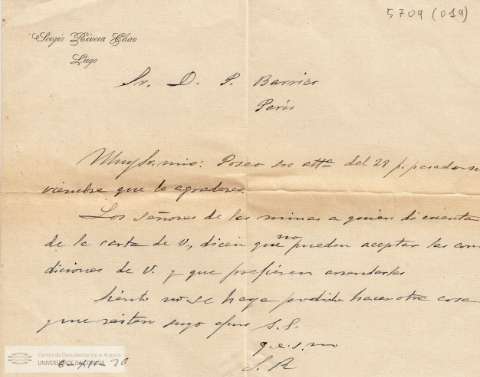 5709 (019)
Sergio Rivera Chao
Lugo
Sr. D. P. Barrico
Paris
Muy Sr. mio: Poseo su att.ª del 28 p. pasado no
viembre que le agradezco.
Los señores de las minas a quien di cuenta
de la carta de V, dicen que no pueden aceptar las con
diciones de V. y que prefieren arrendarlas
Siento no se haya podido hacer otra cosa
y me reitero suyo afmo S. S.
q. e. s. m
S. R
UNIVERSIDADE DA